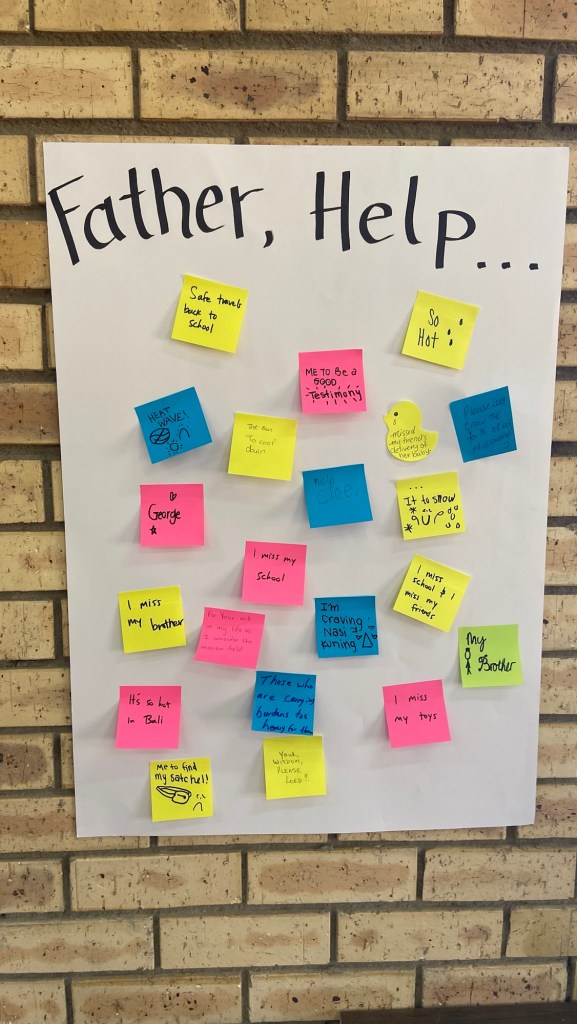 Father, Help...
Safe travels
back to
school
So
Hot
ME TO Be a
GOOD
Testimony
HEAT
WAVE!
The sun
To cool
down
missed
my friends
delivery of
her baby
Please
help
Cloe.
...
It to snow
George
I miss my
school
I miss
school & I
miss my
friends
I miss
my brother
For Your will
in my life as
I consider the
mission field
I'm
Craving
Nasi
Kuning
My
Brother
It's so hot
in Bali
Those who
are carrying
burdens too
heavy for them
I miss
my toys
Me to find
my satchel!
Your
wisdom,
PLEASE
LORD!